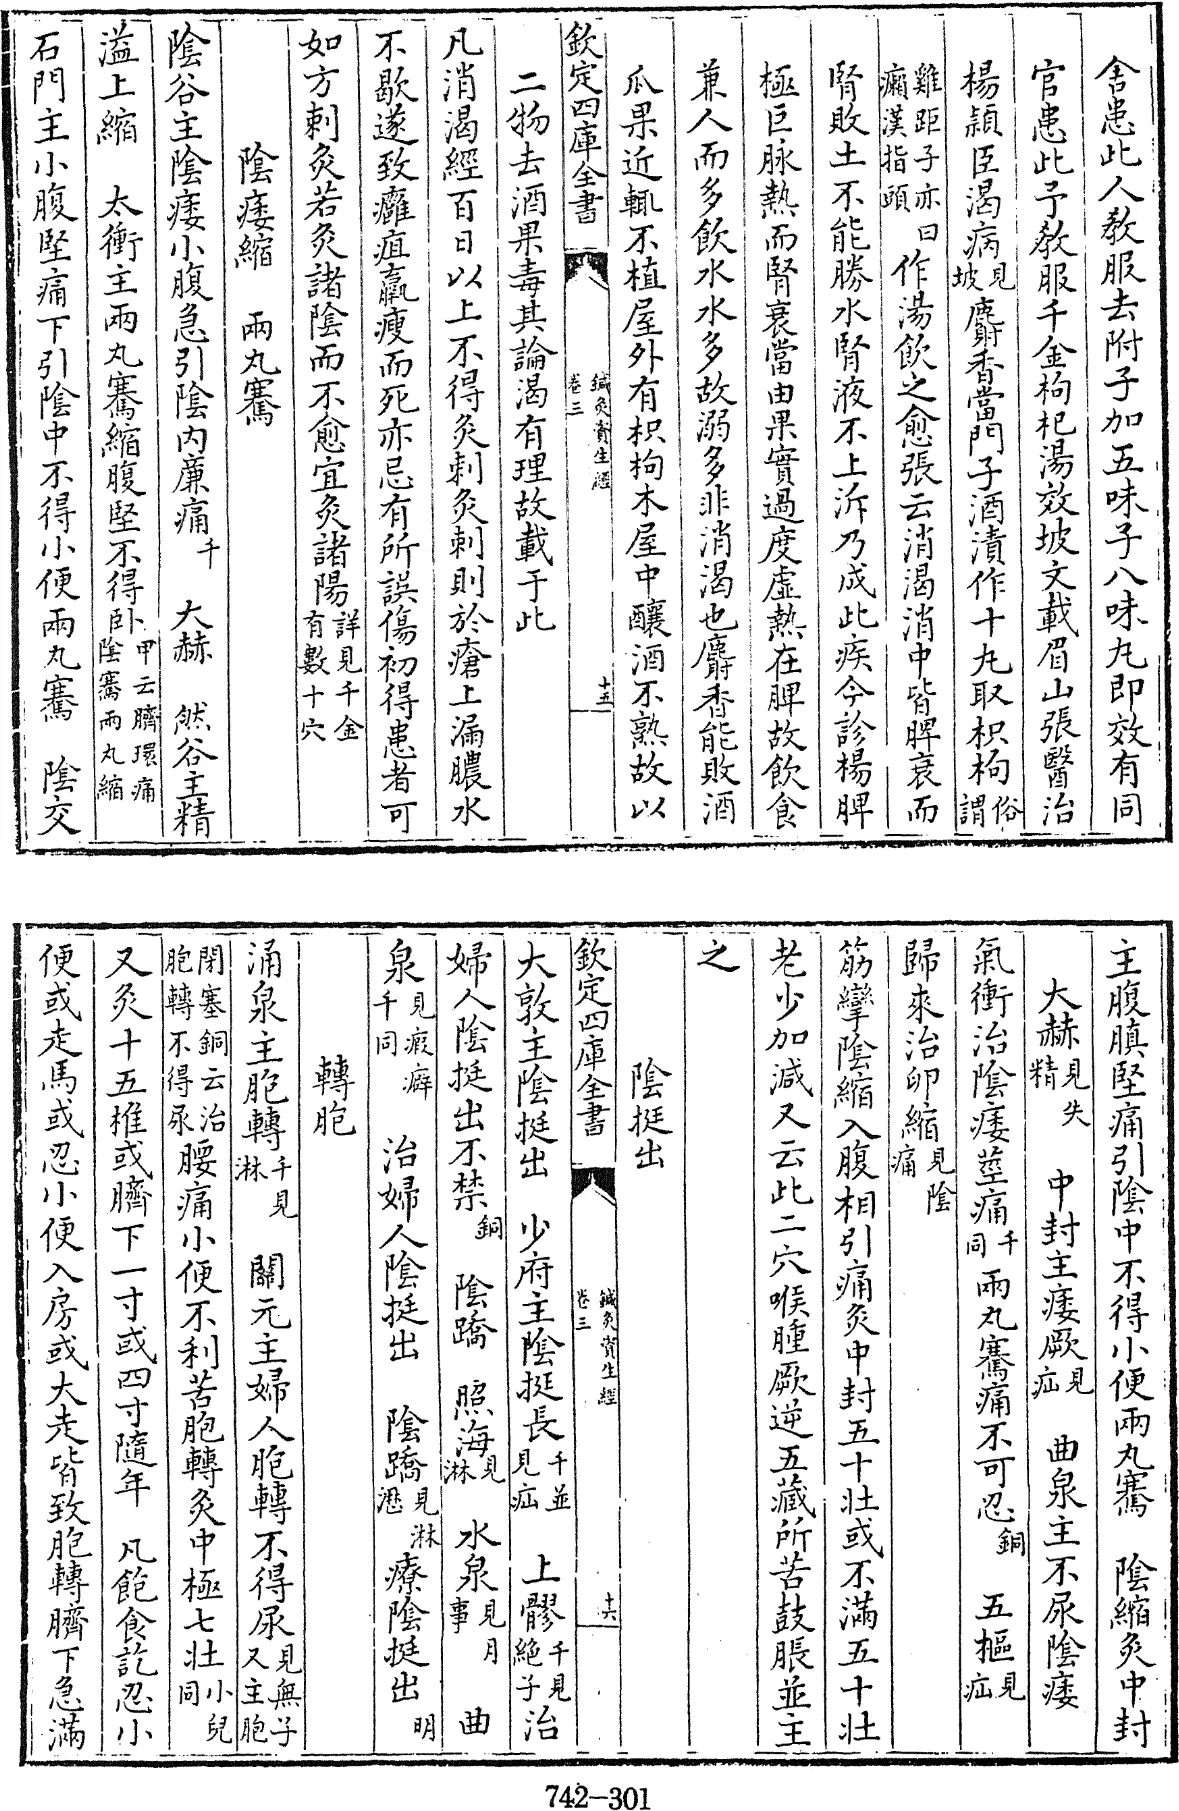 舍患此人教服去附子加五味子八味丸即效有同
官患此予教服千金枸杞湯效坡文載眉山張醫治
楊頴臣渴病見坡麝香當門子酒漬作十丸取枳枸俗謂
雞距子亦曰癩漢指頭作湯飲之愈張云消渴消中皆脾衰而
腎敗土不能勝水腎液不上泝乃成此疾今診楊脾
極巨脉熱而腎衰當由果實過度虛熱在脾故飲食
兼人而多飲水水多故溺多非消渴也麝香能敗酒
瓜果近輒不植屋外有枳枸木屋中釀酒不熟故以
欽定四庫全書 鍼灸資生經卷三 十五
二物去酒果毒其論渴有理故載于此
凡消渴經百日以上不得灸刺灸刺則於瘡上漏膿水
不歇遂致癰疽羸瘦而死亦忌有所誤傷初得患者可
如方刺灸若灸諸陰而不愈宜灸諸陽詳見千金有數十穴
陰痿縮 兩丸騫
陰谷主陰痿小腹急引陰内廉痛千 大赫 然谷主精
溢上縮 太衝主兩丸騫縮腹堅不得卧甲云臍環痛陰騫兩丸縮
石門主小腹堅痛下引陰中不得小便兩丸騫 陰交
主腹䐜堅痛引陰中不得小便兩丸騫 陰縮灸中封
大赫見失精 中封主痿厥見疝 曲泉主不尿陰痿
氣衝治陰痿莖痛千同兩丸騫痛不可忍銅 五樞見疝
歸來治卵縮見陰痛
筋攣陰縮入腹相引痛灸中封五十壯或不滿五十壯
老少加減又云此二穴喉腫厥逆五藏所苦鼓脹並主
之
陰挺出
欽定四庫全書 鍼灸資生經卷三 十六
大敦主陰挺出 少府主陰挺長千並見疝 上髎千見絶子治
婦人陰挺出不禁銅 陰蹻 照海見淋 水泉見月事 曲
泉見瘕癖千同 治婦人陰挺出 陰蹻見淋瀝 療陰挺出明
轉胞
涌泉主胞轉千見淋 關元主婦人胞轉不得尿見無子又主胞
閉塞銅云治胞轉不得尿腰痛小便不利苦胞轉灸中極七壯小兒同
又灸十五椎或臍下一寸或四寸隨年 凡飽食訖忍小
便或走馬或忍小便入房或大走皆致胞轉臍下急滿
742-301